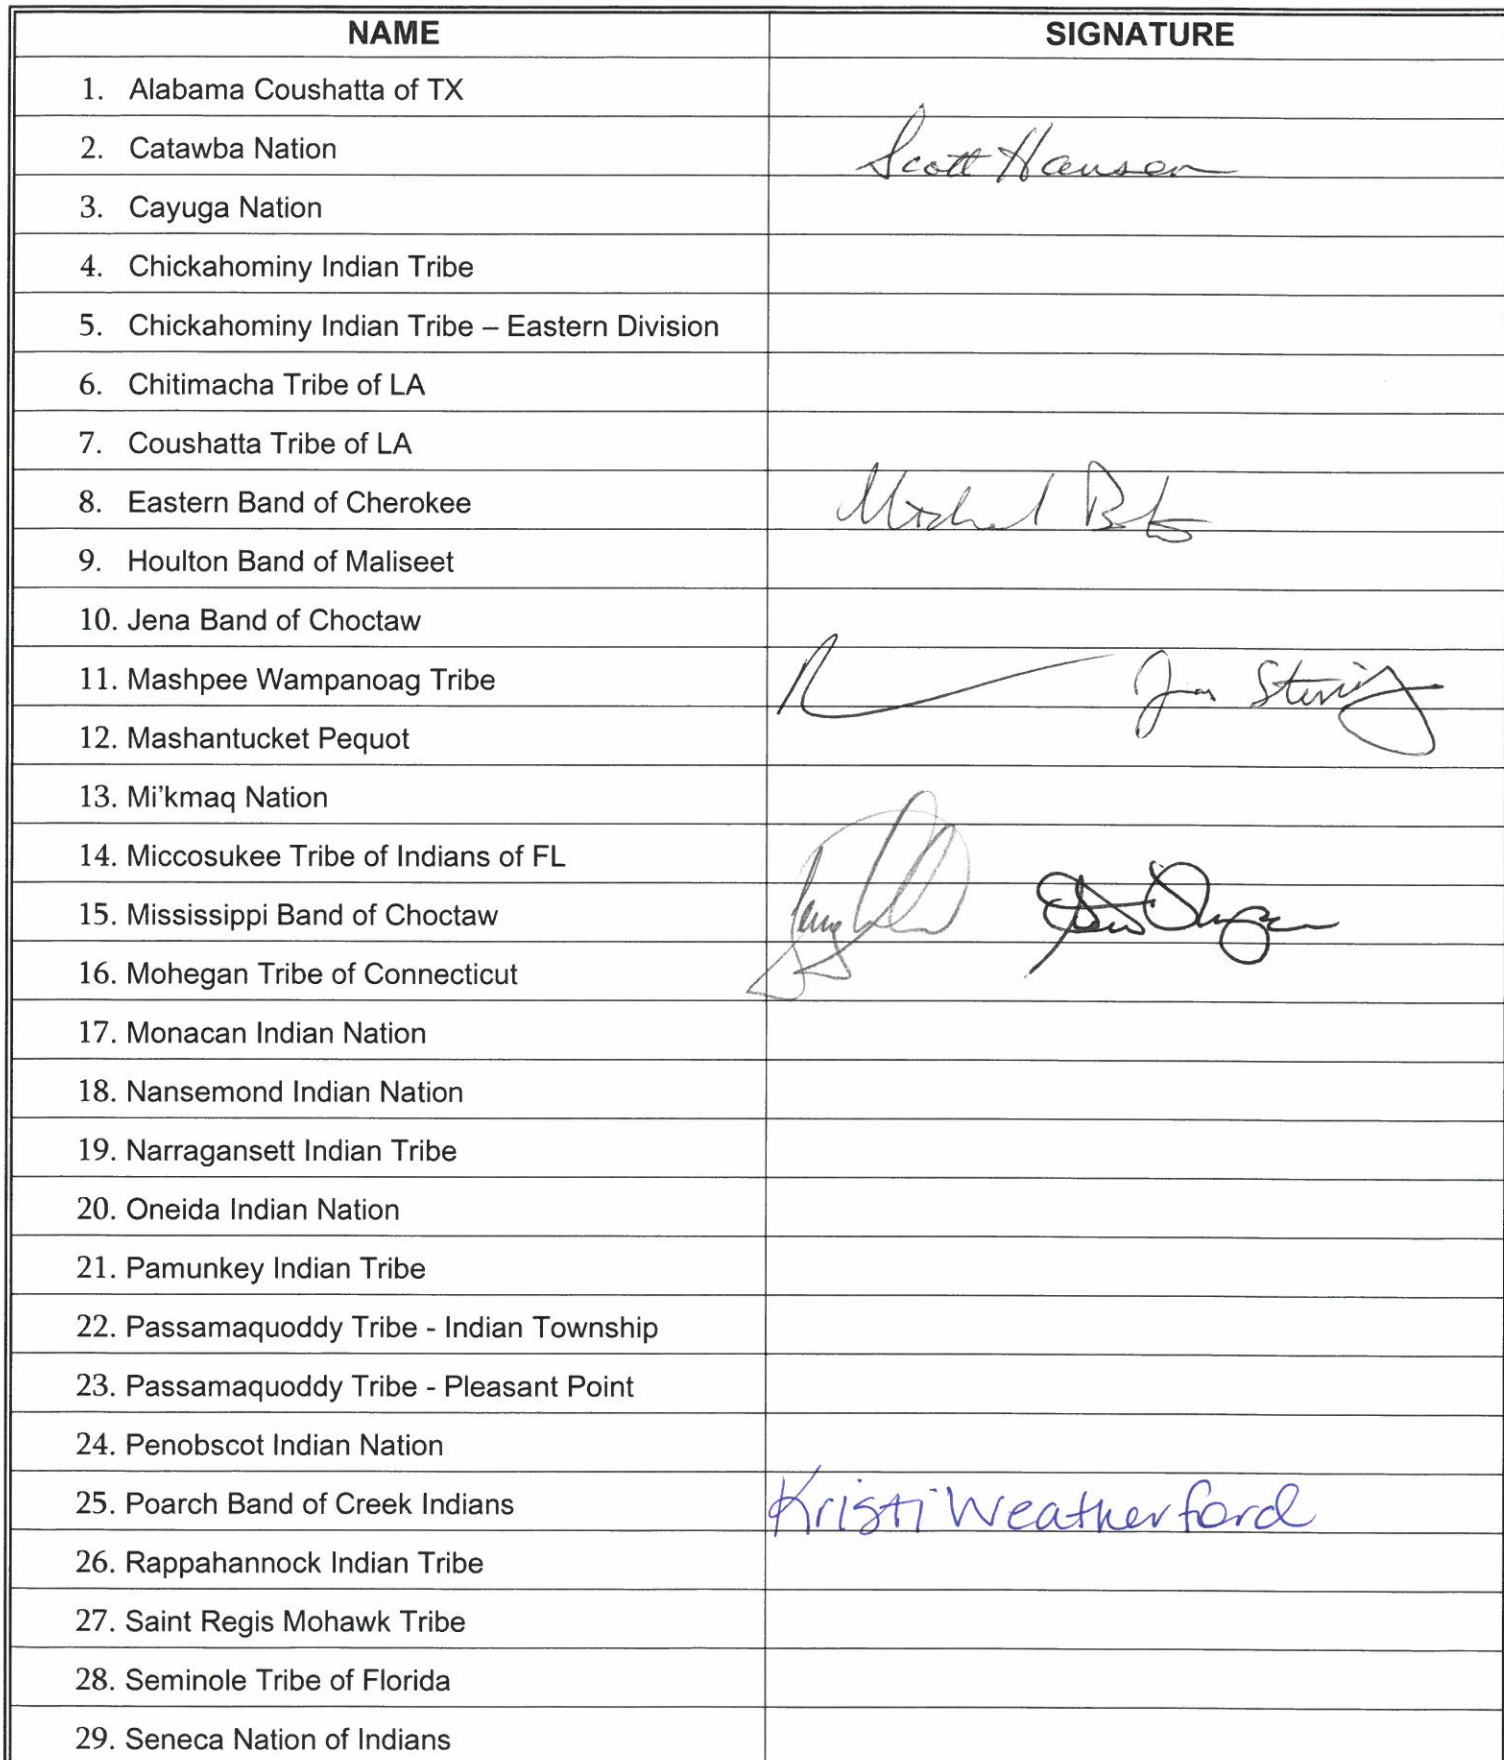 NAME SIGNATURE
1. Alabama Coushatta of TX
2. Catawba Nation Scott Hansen
3. Cayuga Nation
4. Chickahominy Indian Tribe
5. Chickahominy Indian Tribe – Eastern Division
6. Chitimacha Tribe of LA
7. Coushatta Tribe of LA
8. Eastern Band of Cherokee Michael
9. Houlton Band of Maliseet
10. Jena Band of Choctaw
11. Mashpee Wampanoag Tribe
12. Mashantucket Pequot
13. Mi'kmaq Nation
14. Miccosukee Tribe of Indians of FL
15. Mississippi Band of Choctaw
16. Mohegan Tribe of Connecticut
17. Monacan Indian Nation
18. Nansemond Indian Nation
19. Narragansett Indian Tribe
20. Oneida Indian Nation
21. Pamunkey Indian Tribe
22. Passamaquoddy Tribe - Indian Township
23. Passamaquoddy Tribe - Pleasant Point
24. Penobscot Indian Nation
25. Poarch Band of Creek Indians Kristi Weatherford
26. Rappahannock Indian Tribe
27. Saint Regis Mohawk Tribe
28. Seminole Tribe of Florida
29. Seneca Nation of Indians